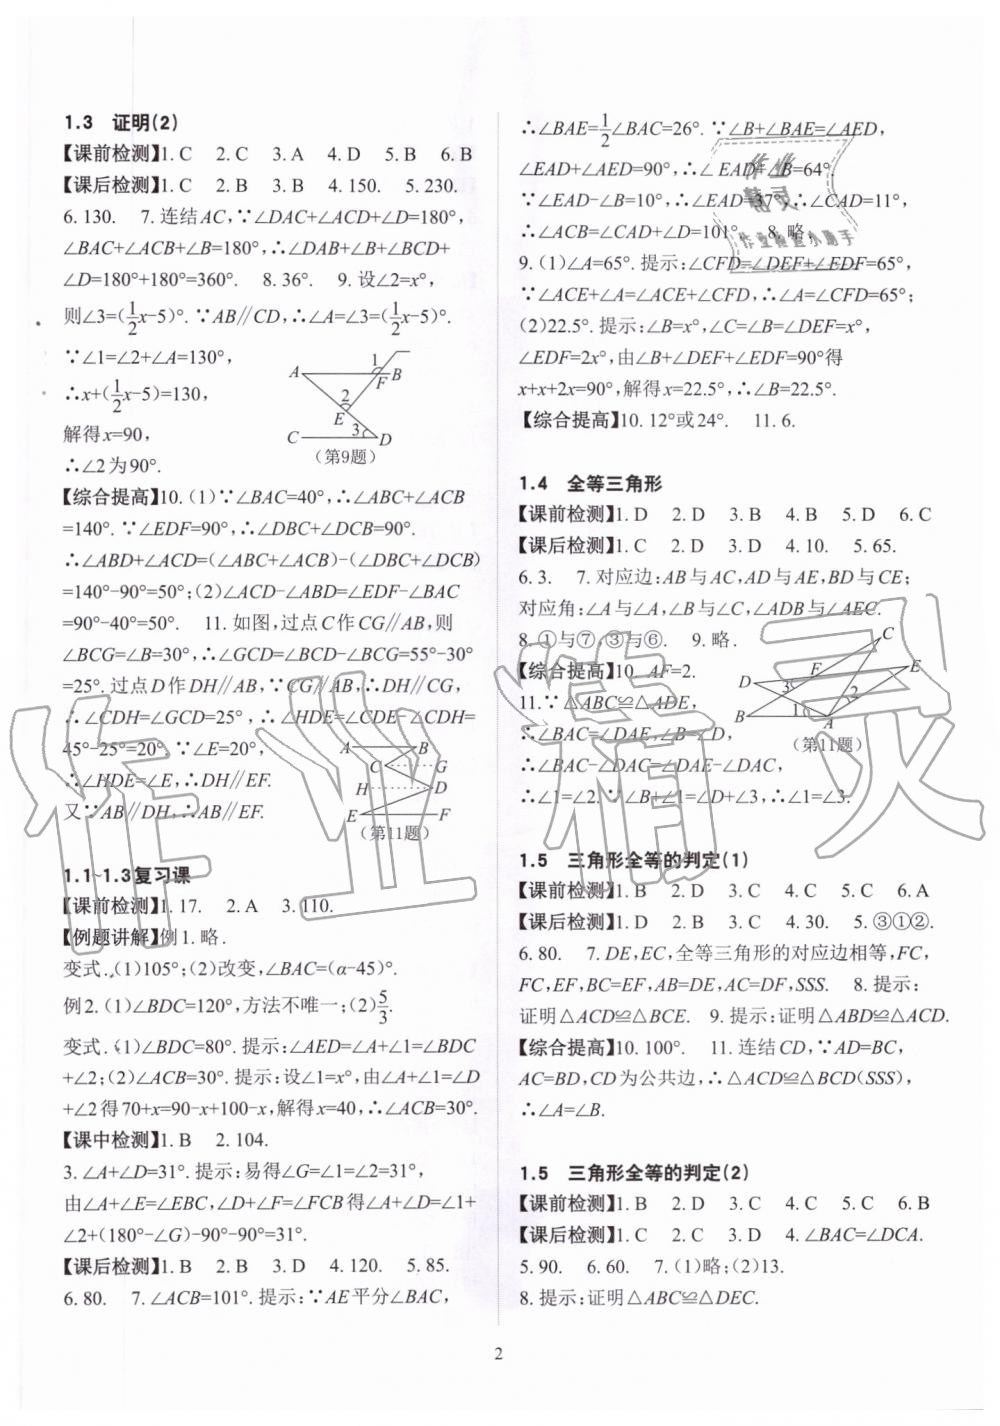 1.3 证明(2)
【课前检测】1. C 2. C 3. A 4. D 5. B 6. B
【课后检测】1. C 2. B 3. B 4. 150. 5. 230.
6. 130. 7. 连结AC,∵∠DAC+∠ACD+∠D=180°,
∠BAC+∠ACB+∠B=180°,∴∠DAB+∠B+∠BCD+
∠D=180°+180°=360°. 8. 36°. 9. 设∠2=x°,
则∠3=(1/2x-5)°. ∵AB∥CD,∴∠A=∠3=(1/2x-5)°.
∵∠1=∠2+∠A=130°,
∴x+(1/2x-5)=130,
解得x=90,
∴∠2为90°.
A B C D E F 1 2 3
(第9题)
【综合提高】10. (1)∵∠BAC=40°,∴∠ABC+∠ACB
=140°. ∵∠EDF=90°,∴∠DBC+∠DCB=90°.
∴∠ABD+∠ACD=(∠ABC+∠ACB)-(∠DBC+∠DCB)
=140°-90°=50°;(2)∠ACD-∠ABD=∠EDF-∠BAC
=90°-40°=50°. 11. 如图,过点C作CG∥AB,则
∠BCG=∠B=30°,∴∠GCD=∠BCD-∠BCG=55°-30°
=25°. 过点D作DH∥AB,∵CG∥AB,∴DH∥CG,
∴∠CDH=∠GCD=25°,∴∠HDE=∠CDE-∠CDH=
45°-25°=20°. ∵∠E=20°,
∴∠HDE=∠E,∴DH∥EF.
又∵AB∥DH,∴AB∥EF.
A B C G H D E F
(第11题)
1.1~1.3复习课
【课前检测】1. 17. 2. A 3. 110.
【例题讲解】例1. 略.
变式. (1)105°;(2)改变,∠BAC=(α-45)°.
例2. (1)∠BDC=120°,方法不唯一;(2)5/3.
变式. (1)∠BDC=80°. 提示:∠AED=∠A+∠1=∠BDC
+∠2;(2)∠ACB=30°. 提示:设∠1=x°,由∠A+∠1=∠D
+∠2得70+x=90-x+100-x,解得x=40,∴∠ACB=30°.
【课中检测】1. B 2. 104.
3. ∠A+∠D=31°. 提示:易得∠G=∠1+∠2=31°,
由∠A+∠E=∠EBC,∠D+∠F=∠FCB得∠A+∠D=∠1+
∠2+(180°-∠G)-90°-90°=31°.
【课后检测】1. B 2. B 3. D 4. 120. 5. 85.
6. 80. 7. ∠ACB=101°. 提示:∵AE平分∠BAC,
∴∠BAE=1/2∠BAC=26°. ∵∠B+∠BAE=∠AED,
∠EAD+∠AED=90°,∴∠EAD+∠B=64°.
∵∠EAD-∠B=10°,∴∠EAD=37°,∴∠CAD=11°,
∴∠ACB=∠CAD+∠D=101°. 8. 略.
9. (1)∠A=65°. 提示:∠CFD=∠DEF+∠EDF=65°,
∵∠ACE+∠A=∠ACE+∠CFD,∴∠A=∠CFD=65°;
(2)22.5°. 提示:∠B=x°,∠C=∠B=∠DEF=x°,
∠EDF=2x°,由∠B+∠DEF+∠EDF=90°得
x+x+2x=90°,解得x=22.5°,∴∠B=22.5°.
【综合提高】10. 12°或24°. 11. 6.
1.4 全等三角形
【课前检测】1. D 2. D 3. B 4. B 5. D 6. C
【课后检测】1. C 2. D 3. D 4. 10. 5. 65.
6. 3. 7. 对应边:AB与AC,AD与AE,BD与CE;
对应角:∠A与∠A,∠B与∠C,∠ADB与∠AEC.
8. ①与⑦,③与⑥. 9. 略.
【综合提高】10. AF=2.
11. ∵△ABC≌△ADE,
∴∠BAC=∠DAE,∠B=∠D,
∴∠BAC-∠DAC=∠DAE-∠DAC,
∴∠1=∠2. ∵∠B+∠1=∠D+∠3,∴∠1=∠3.
D B A C E F 1 2 3
(第11题)
1.5 三角形全等的判定(1)
【课前检测】1. B 2. D 3. D 4. C 5. C 6. A
【课后检测】1. D 2. B 3. D 4. 30. 5. ③①②.
6. 80. 7. DE,EC,全等三角形的对应边相等,FC,
FC,EF,BC=EF,AB=DE,AC=DF,SSS. 8. 提示:
证明△ACD≌△BCE. 9. 提示:证明△ABD≌△ACD.
【综合提高】10. 100°. 11. 连结CD,∵AD=BC,
AC=BD,CD为公共边,∴△ACD≌△BCD(SSS),
∴∠A=∠B.
1.5 三角形全等的判定(2)
【课前检测】1. B 2. D 3. A 4. C 5. C 6. B
【课后检测】1. C 2. C 3. D 4. ∠BAC=∠DCA.
5. 90. 6. 60. 7. (1)略;(2)13.
8. 提示:证明△ABC≌△DEC.
2
作业精灵
作业
精灵
作业检查小助手